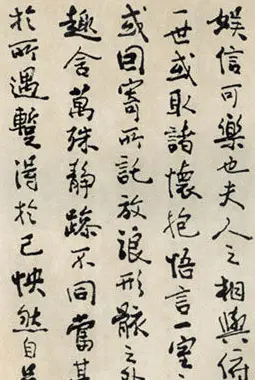 娛信可樂也夫人之相與俯
一世或取諸懷抱悟言一室
或因寄所託放浪形骸之外
趣舍萬殊靜躁不同當其
於所遇蹔得於己怏然自